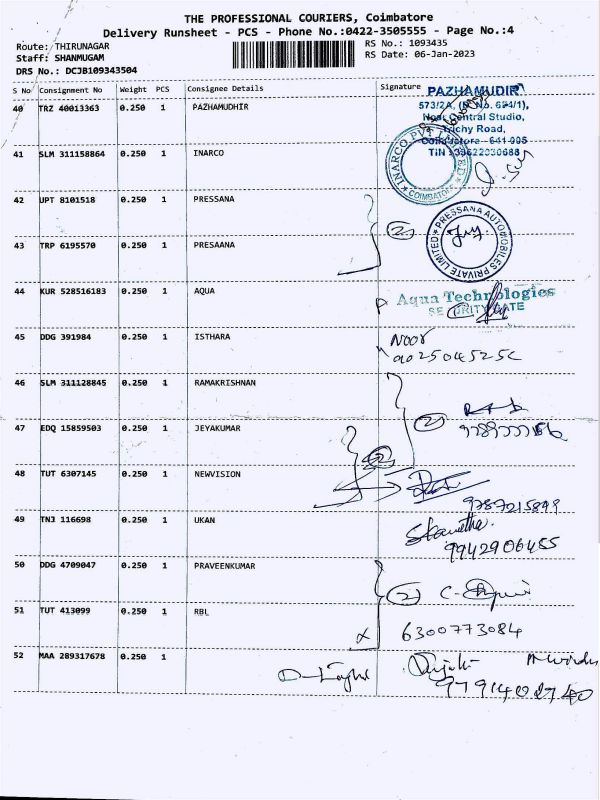 THE PROFESSIONAL COURIERS, Coimbatore
Delivery Runsheet - PCS - Phone No.:0422-3505555 - Page No.:4
Route: THIRUNAGAR
Staff: SHANMUGAM
DRS No.: DCJB109343504
RS No.: 1093435
RS Date: 06-Jan-2023
S No Consignment No Weight PCS Consignee Details Signature
40 TRZ 40013363 0.250 1 PAZHAMUDHIR
PAZHAMUDIR
573/2A, (P.No. 684/1),
Near Central Studio,
Trichy Road,
Coimbatore - 641 005
41 SLM 311158864 0.250 1 INARCO
COIMBATORE
42 UPT 8101518 0.250 1 PRESSANA
43 TRP 6195570 0.250 1 PRESAANA
2
PRESSANA AUTOMOBILES PRIVATE LIMITED
44 KUR 528516183 0.250 1 AQUA
Aqua Technologies
SECURITY GATE
45 DDG 391984 0.250 1 ISTHARA
Noor
46 SLM 311128845 0.250 1 RAMAKRISHNAN
47 EDQ 15859503 0.250 1 JEYAKUMAR
2
48 TUT 6307145 0.250 1 NEWVISION
2
9787215899
49 TNJ 116698 0.250 1 UKAN
9942906455
50 DDG 4709047 0.250 1 PRAVEENKUMAR
2
51 TUT 413099 0.250 1 RBL
6300773084
52 MAA 289317678 0.250 1
9791402740